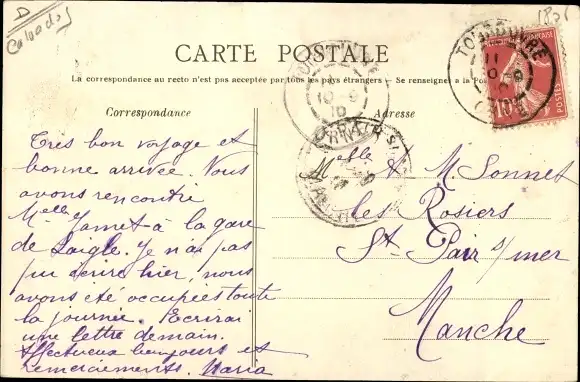 D
Calvados
CARTE POSTALE
La correspondance au recto n'est pas acceptée par tous les pays étrangers — Se renseigner à la Pos
Correspondance
Tres bon voyage et
bonne arrivée. Vous
avons rencontré
Melle Jamet à la gare
de Laigle. Je n'ai pas
pu écrire hier, nous
avons été occupées toute
la journée. Ecrirai
une lettre demain.
Affectueux bonjours et
remerciements. Maria
Adresse
Melle A. M. Sonnet
les Rosiers
St Pair s/mer
Manche
TOUROUVRE
10
POSTES